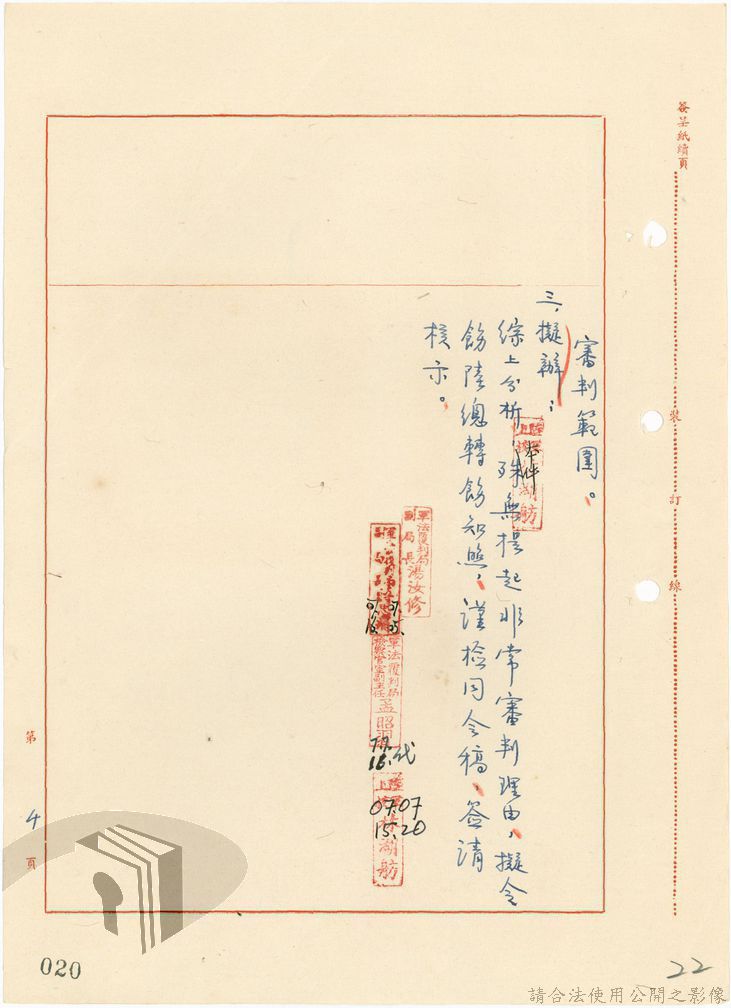 簽呈紙續頁
裝
訂
線
審判範圍。
三、擬辦：
綜上分析，本件殊無提起非常審判理由，擬令
飭陸總轉飭知照，謹檢同令稿，簽請
核示。
軍法覆判局
副局長 湯汝修
軍法覆判局
副主任 孟昭
代
07.07
15.20
湖舫
第 4 頁
020
22
請合法使用公開之影像